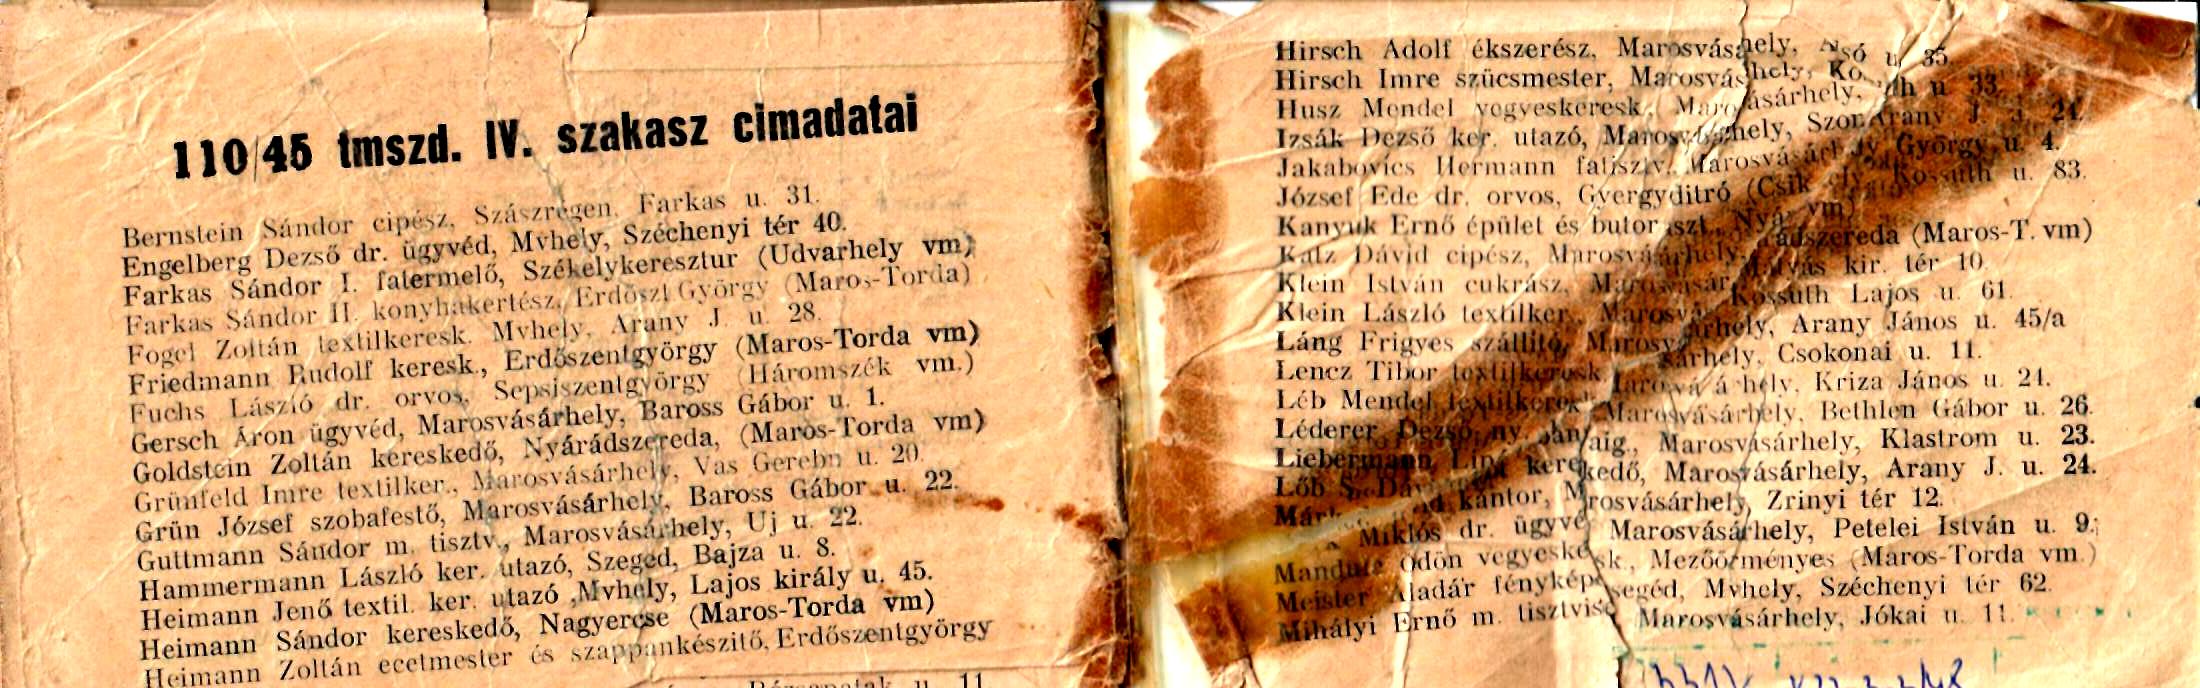 110/45 tmszd. IV. szakasz cimadatai
Bernstein Sándor cipész, Szászrégen, Farkas u. 31.
Engelberg Dezső dr. ügyvéd, Mvhely, Széchenyi tér 40.
Farkas Sándor I. fatermelő, Székelykeresztur (Udvarhely vm)
Farkas Sándor II. konyhakertész, Erdőszt György (Maros-Torda)
Fogel Zoltán textilkeresk. Mvhely, Arany J. u. 28.
Friedmann Rudolf keresk., Erdőszentgyörgy (Maros-Torda vm)
Fuchs László dr. orvos, Sepsiszentgyörgy (Háromszék vm.)
Gersch Áron ügyvéd, Marosvásárhely, Baross Gábor u. 1.
Goldstein Zoltán kereskedő, Nyárádszereda, (Maros-Torda vm)
Grünfeld Imre textilker., Marosvásárhely, Vas Gerebn u. 20.
Grün József szobafestő, Marosvásárhely, Baross Gábor u. 22.
Guttmann Sándor m. tisztv., Marosvásárhely, Uj u. 22.
Hammermann László ker. utazó, Szeged, Bajza u. 8.
Heimann Jenő textil. ker. utazó ,Mvhely, Lajos király u. 45.
Heimann Sándor kereskedő, Nagyercse (Maros-Torda vm)
Heimann Zoltán ecetmester és szappankészitő, Erdőszentgyörgy
u. 11
Hirsch Adolf ékszerész, Marosvásárhely, u. 35
Hirsch Imre szücsmester, Marosvásárhely, u 33.
Husz Mendel vegyeskeresk., Marosvásárhely, Arany J. 24.
Izsák Dezső ker. utazó, Marosvásárhely, György u. 4.
Jakabovics Hermann fatisztv. Marosvásárhely Kossuth u. 83.
József Ede dr. orvos, Gyergyditró (Csik vm)
Kanyuk Ernő épület és butor aszt., Nyárádszereda (Maros-T. vm)
Katz Dávid cipész, Marosvásárhely, Mátyás kir. tér 10.
Klein István cukrász, Marosvásár Kossuth Lajos u. 61.
Klein László textilker., Marosvásárhely, Arany János u. 45/a
Láng Frigyes szállitó, Marosvásárhely, Csokonai u. 11.
Lencz Tibor textilkeresk Marosvásárhely, Kriza János u. 21.
Léb Mendel textilkeresk Marosvásárhely, Bethlen Gábor u. 26.
Léderer Dezső ny. Marosvásárhely, Klastrom u. 23.
Liebermann kereskedő, Marosvásárhely, Arany J. u. 24.
Lőb S. Dávid kántor, Marosvásárhely, Zrinyi tér 12.
Miklós dr. ügyvé Marosvásárhely, Petelei István u. 9.
Ödön vegyeskesk., Mezőörményes (Maros-Torda vm.)
Meister Aladár fényképsegéd, Mvhely, Széchenyi tér 62.
Mihályi Ernő m. tisztvise Marosvásárhely, Jókai u. 11.